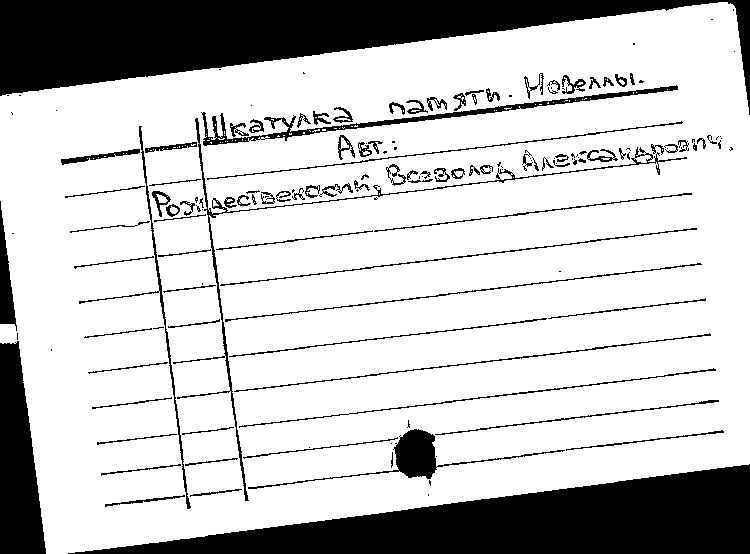 Шкатулка памяти. Новеллы.
Авт.:
Рождественский, Всеволод Александрович.